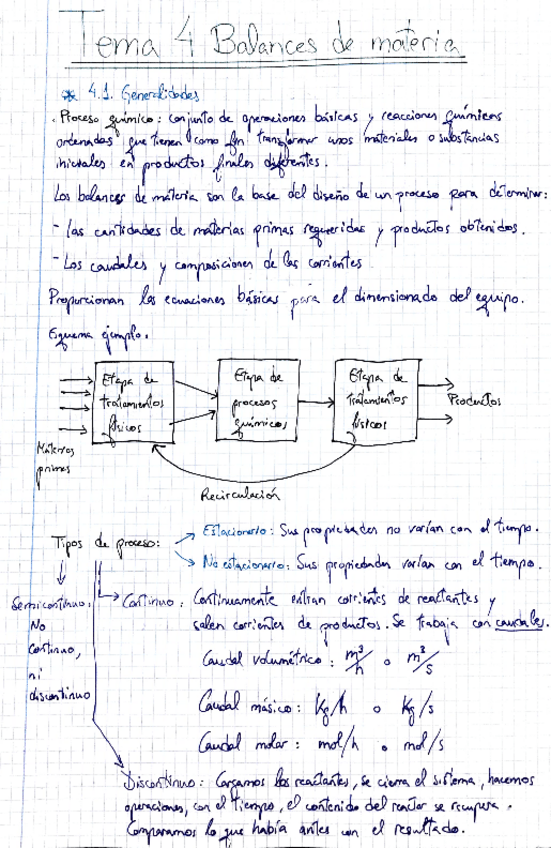 Tema 4 Balances de materia
* 4.1. Generalidades
· Proceso químico: conjunto de operaciones básicas y reacciones químicas
ordenadas que tienen como fin transformar unos materiales o substancias
iniciales en productos finales diferentes.
Los balances de materia son la base del diseño de un proceso para determinar:
- las cantidades de materias primas requeridas y productos obtenidos.
- Los caudales y composiciones de las corrientes
Proporcionan las ecuaciones básicas para el dimensionado del equipo.
Esquema ejemplo.
Etapa de
tratamientos
físicos
Etapa de
procesos
químicos
Etapa de
tratamientos
físicos
Productos
Materias
primas
Recirculación
Tipos de proceso:
Estacionario: Sus propiedades no varían con el tiempo.
No estacionario: Sus propiedades varían con el tiempo.
Semicontinuo:
No
continuo,
ni
discontinuo
Continuo: Continuamente entran corrientes de reactantes y
salen corrientes de productos. Se trabaja con caudales.
Caudal volumétrico: m³/h o m³/s
Caudal másico: Kg/h o Kg/s
Caudal molar: mol/h o mol/s
Discontinuo: Cargamos los reactantes, se cierra el sistema, hacemos
operaciones, con el tiempo, el contenido del reactor se recupera.
Comparamos lo que había antes con el resultado.